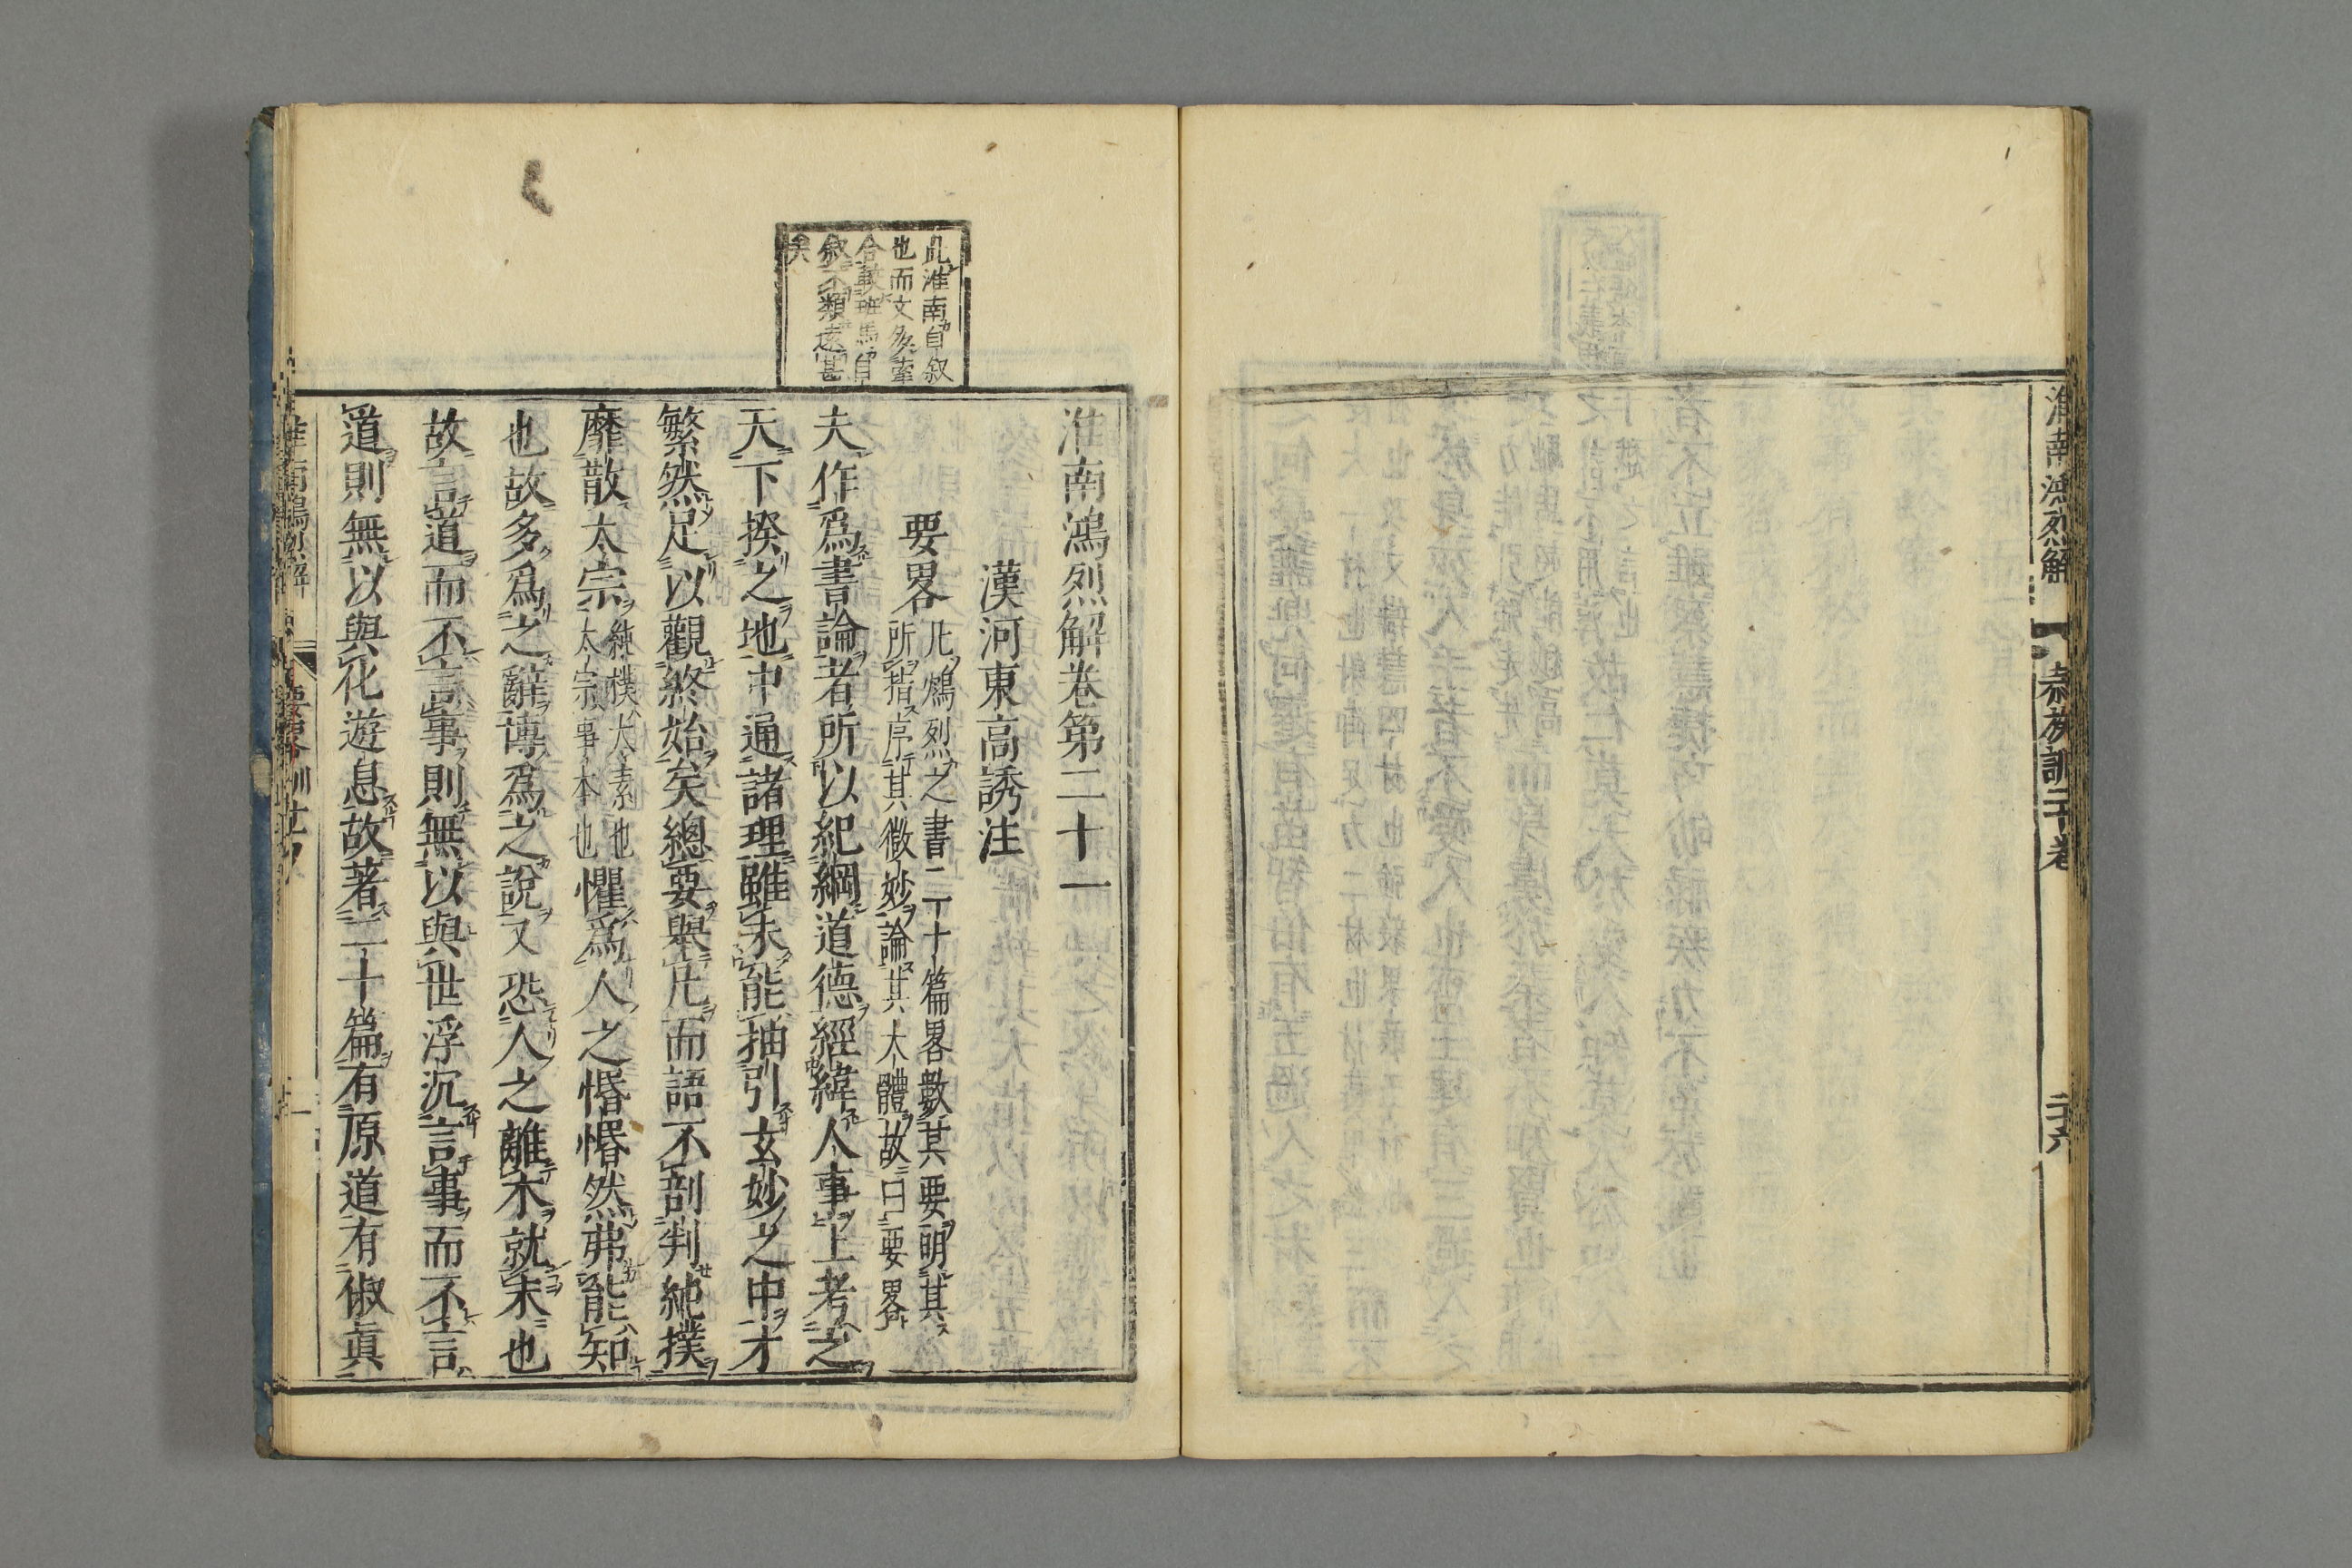 淮南鴻烈解
泰族訓二十卷
二十六
此淮南自叙
也而文多牽
合較班馬自
叙不類遠甚
矣
淮南鴻烈解卷第二十一
漢河東高誘注
要畧
凡鴻烈之書二十篇畧數其要明其
所指序其微妙論其大體故曰要畧
夫作爲書論者所以紀綱道德經緯人事上考之
天下揆之地中通諸理雖未能抽引玄妙之中才
繁然足以觀終始矣總要舉凡而語不剖判純撲
靡散太宗
純樸太素也
太宗事本也
懼爲人之惛惛然弗能知
也故多爲之辭博爲之說又恐人之離本就末也
故言道而不言事則無以與世浮沉言事而不言
道則無以與化遊息故著二十篇有原道有俶眞
淮南鴻烈解
要畧